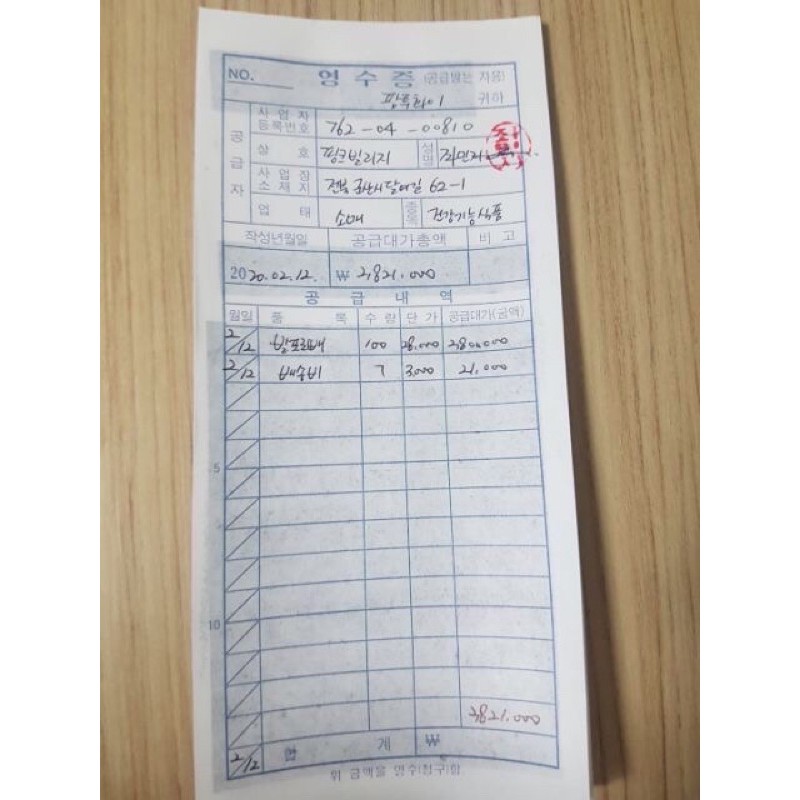 NO. 영 수 증 (공급받는 자용)
귀하
공급자
사업자등록번호 762-04-00810
상호 핑크빌리지 성명
사업장소재지 전북 군산시 62-1
업태 소매 종목 건강기능식품
작성년월일 공급대가총액 비고
2020.02.12. ₩ 2,821,000
공 급 내 역
월일 품 목 수량 단가 공급대가(금액)
2/12 100 28,000 2,800,000
2/12 배송비 7 3,000 21,000
5
10
2,821,000
2/12 합 계 ₩
위 금액을 영수(청구)함